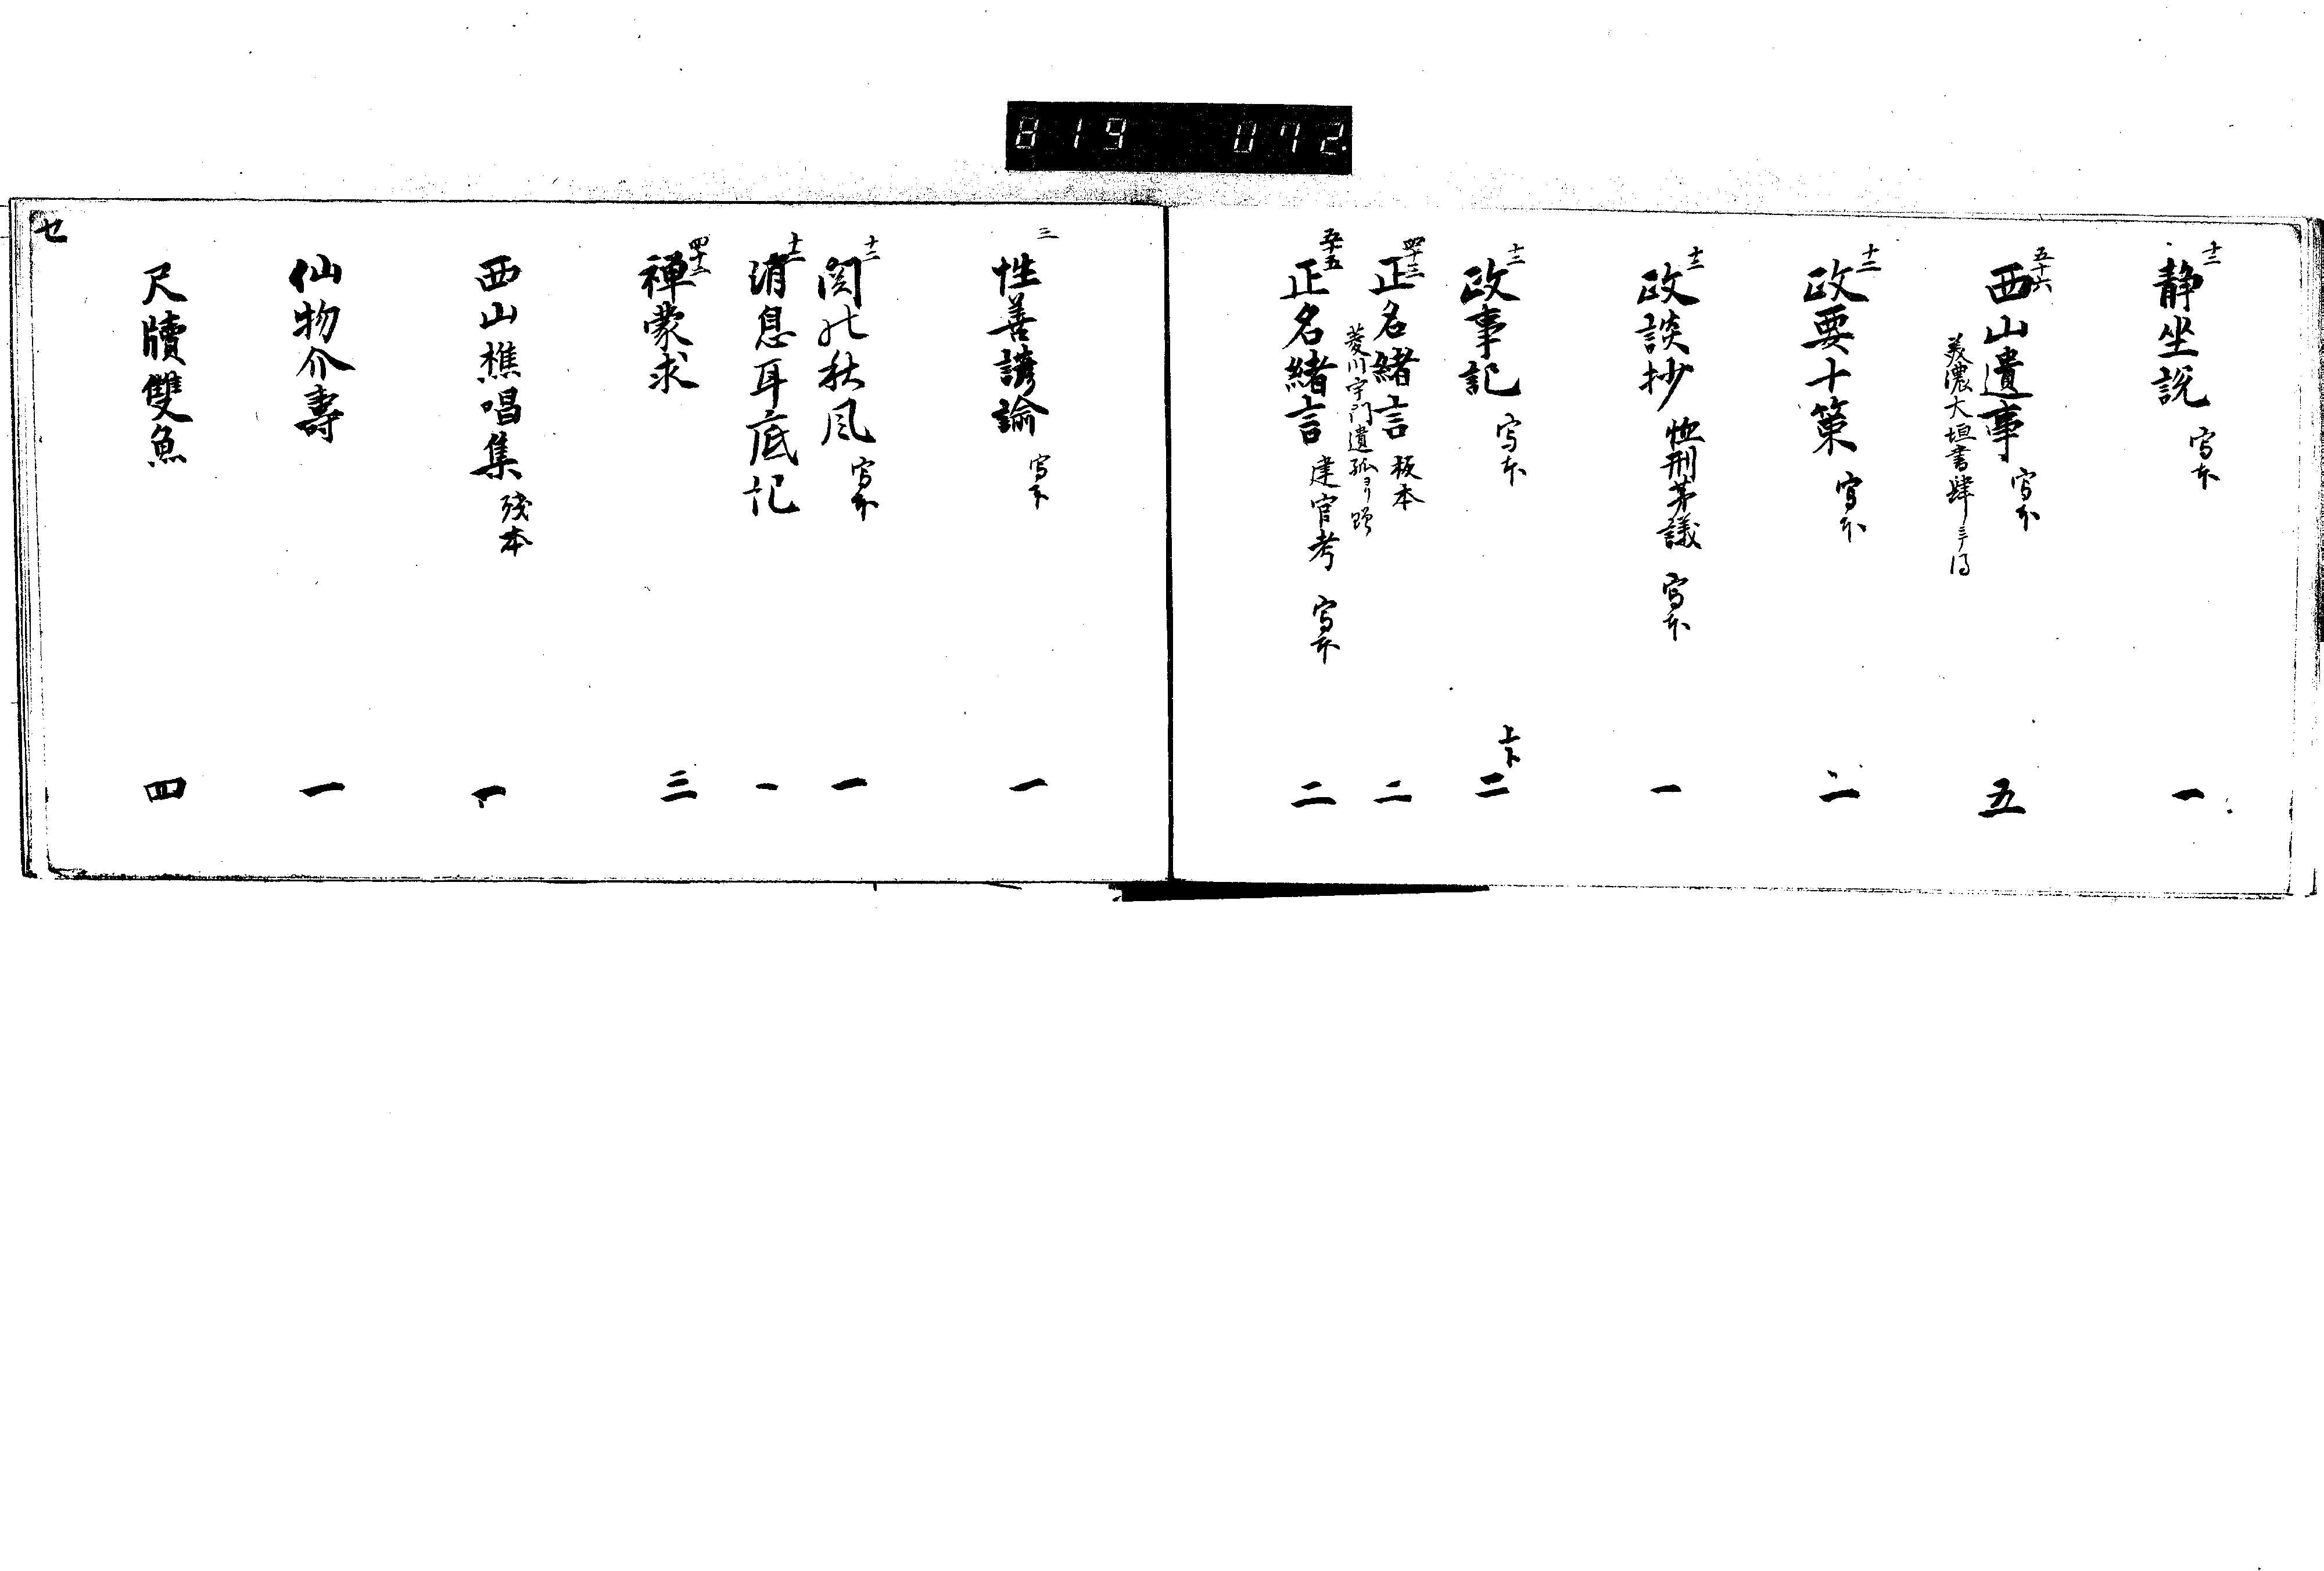 819 042
十二 静坐説 写本 一
五十六 西山遺事 写本 五
美濃大垣書肆ニテ得
十二 政要十策 写本 二
十三 政談抄 恤刑茅議 写本 一
十三 政事記 写本 上下 二
四十三 正名緒言 板本 二
菱川宇門遺孤ヨリ贈
五十五 正名緒言 建官考 写本 二
三 性善講論 写本 一
十三 関の秋風 写本 一
十二 消息耳底記 一
四十二 禅蒙求 三
西山樵唱集 残本 一
仙物介寿 一
尺牘雙魚 四
セ